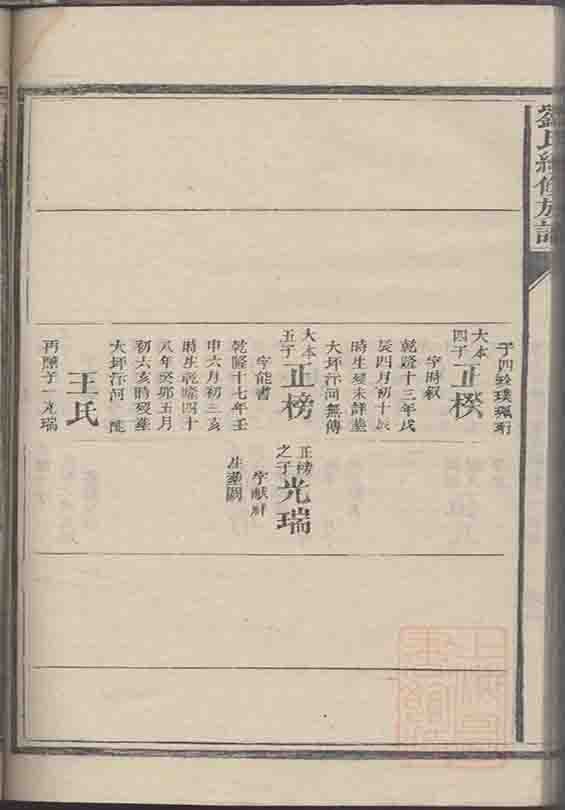 劉氏續修族譜
子四銓璞珮珩
大本四子 正揆
字時叙
乾隆十三年戊
辰四月初十辰
時生歿未詳塟
大坪汴河無傳
大本五子 正榜
字能書
乾隆十七年壬
申六月初三亥
時生乾隆四十
八年癸卯五月
初六亥時歿塟
大坪汴河 配
王氏
再醮子一光瑞
正榜之子 光瑞
字献祥
生塟闕
上海圖書館藏